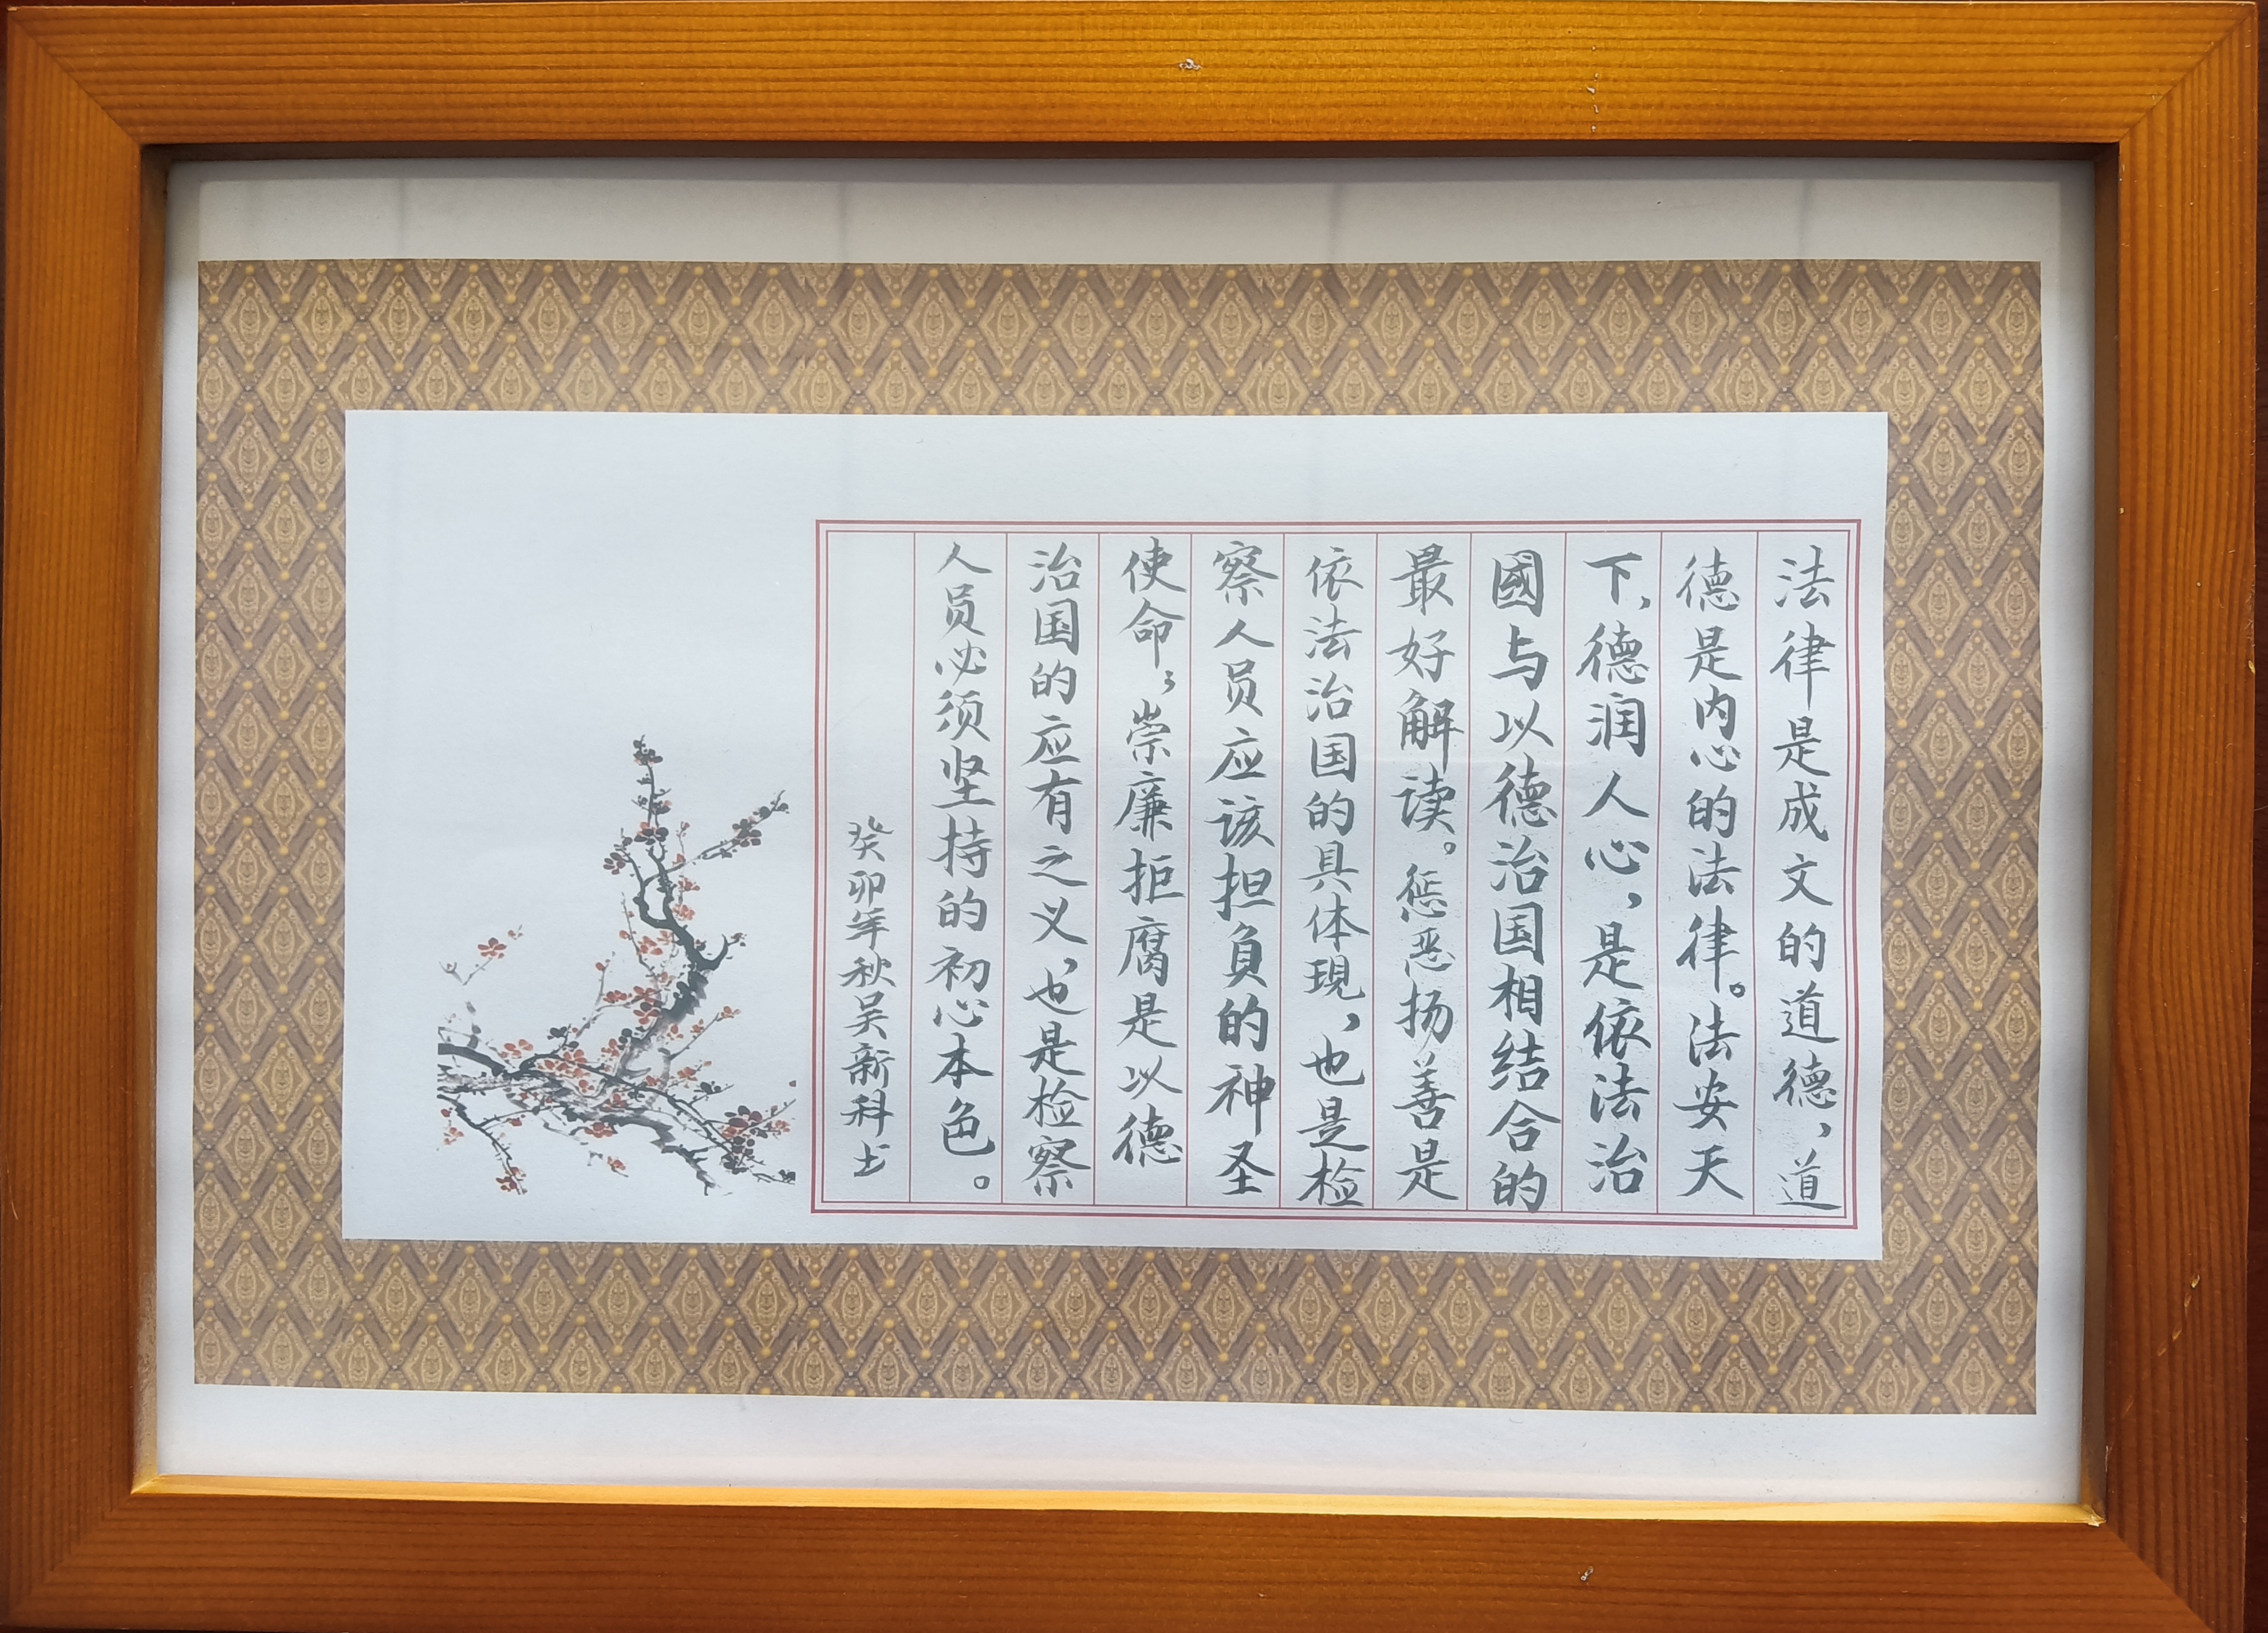 法律是成文的道德，道
德是内心的法律。法安天
下，德润人心，是依法治
國与以德治国相结合的
最好解读。惩恶扬善是
依法治国的具体現，也是检
察人员应该担负的神圣
使命，崇廉拒腐是以德
治国的应有之义，也是检察
人员必须坚持的初心本色。
癸卯年秋吴新科书